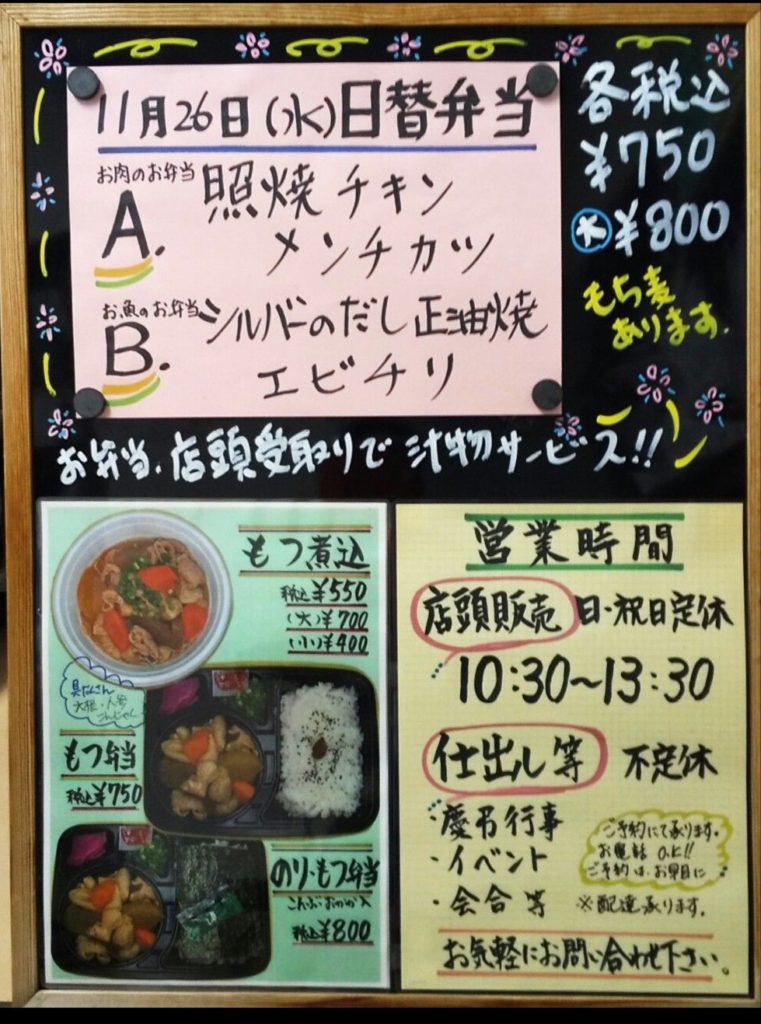 11月26日(水)日替弁当
お肉のお弁当
A. 照焼チキン
メンチカツ
お魚のお弁当
B. シルバーのだし正油焼
エビチリ
各税込
¥750
大 ¥800
もち麦
あります。
お弁当、店頭受取りで 汁物サービス!!
もつ煮込
税込¥550
(大)¥700
(小)¥400
具だくさん
大根・人参
こんにゃく
もつ弁当
税込¥750
のり・もつ弁当
こんぶ おかか入
税込¥800
営業時間
店頭販売 日・祝日定休
10:30〜13:30
仕出し等 不定休
・慶弔行事
・イベント
・会合等
ご予約にて承ります。
お電話 O.K!!
ご予約は、お早目に
※配達承ります。
お気軽にお問い合わせ下さい。